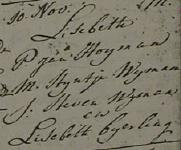 10 Nov.
Lisebeth
P Jan Hoyman
M. Styntje Wyman
J. Steven Wyman
en
Lisebeth byerling